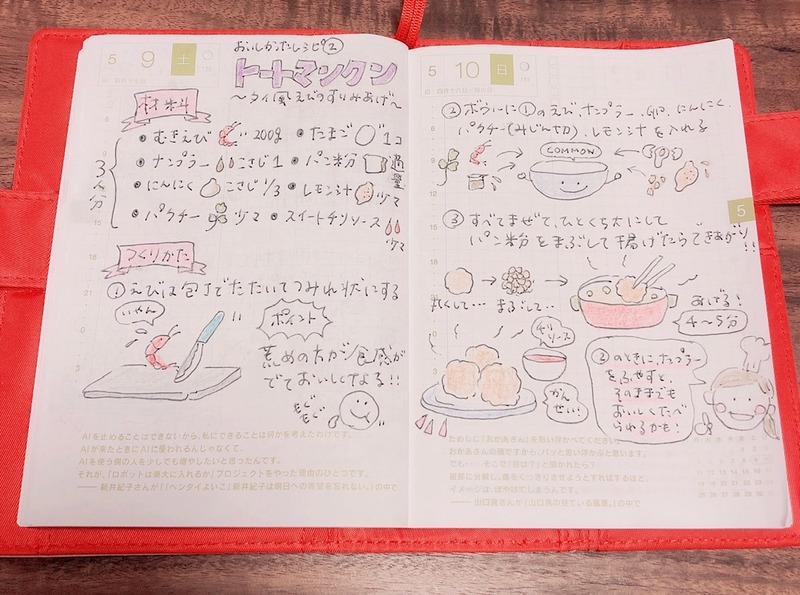 5 9 土
おいしかったレシピ②
トートマンクン
〜タイ風えびのすりみあげ〜
材料
3人分
• むきえび 200g • たまご 1コ
• ナンプラー こさじ1 • パン粉 適量
• にんにく こさじ1/3 • レモン汁 少々
• パクチー 少々 • スイートチリソース 少々
つくりかた
①えびは包丁でたたいてつみれ状にする
いやん
ポイント
荒めの方が食感が
でておいしくなる!!
もぐもぐ
AIを止めることはできないから、私にできることは何かを考えたわけです。
AIが来たときにAIに使われるんじゃなくて、
AIを使う側の人を少しでも増やしたいと思ったんです。
それが、「ロボットは東大に入れるか」プロジェクトをやった理由のひとつです。
——新井紀子さんが『「ヘンタイよいこ」新井紀子は明日への希望を忘れない。』の中で
5 10 日
②ボウルに①のえび、ナンプラー、卵、にんにく、
パクチー(みじん切り)、レモン汁を入れる
COMMON
5
③すべてまぜて、ひとくち大にして
パン粉をまぶして揚げたらできあがり!!
丸くして… まるぶして…
あげる!
4〜5分
チリソース
かんせい!
②のときに、ナンプラー
をふやすと、
そのままでも
おいしくたべ
られるかも!
ためしに「おかあさん」を思い浮かべてください。
おかあさんの顔ですから、パッと思い浮かぶと思います。
でも……そこで「眉は?」と聞かれたら?
細部に分解し、像をくっきりさせようとすればするほど、
イメージは、ぼやけてしまうんです。
——山口晃さんが『山口晃の見ている風景。』の中で